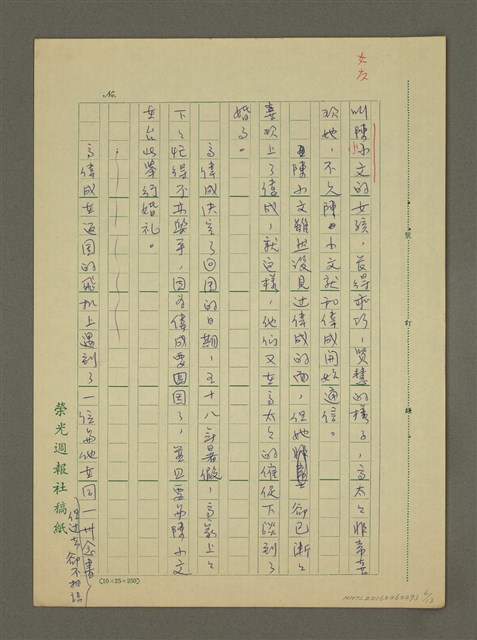 女友
叫陳小文的女孩，長得乖巧，賢慧的樣子，高太太非常喜
歡她，不久陳小文就和偉成開始通信。
陳小文雖然沒見过偉成的面，但她卻已漸漸
喜欢上了偉成，就这樣，他们又在高太太的催促下談到了
婚事。
高偉成决定了回国的日期，五十八年暑假，高家上上
下下忙得不亦樂乎，因為偉成要回国了，並且要與陳小文
在台北舉行婚礼。
高偉成在返国的飛机上遇到了一位與他在同一州念書
但过去卻不相識
榮光週報社稿紙
No.
(10×25=250)
裝 訂 線